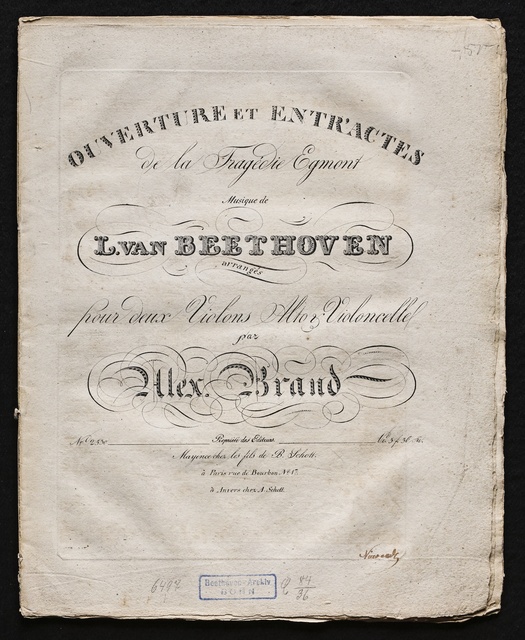 OUVERTURE ET ENTR'ACTES
de la Tragédie Egmont
Musique de
L. VAN BEETHOVEN
arrangés
pour deux Violons Alto & Violoncelle
par
Alex. Brand
Propriété des Editeurs
Mayence chez les fils de B. Schott.
à Paris rue de Bourbon, No. 17
à Anvers chez A. Schott.
6497
Beethoven-Archiv
BONN
84
36